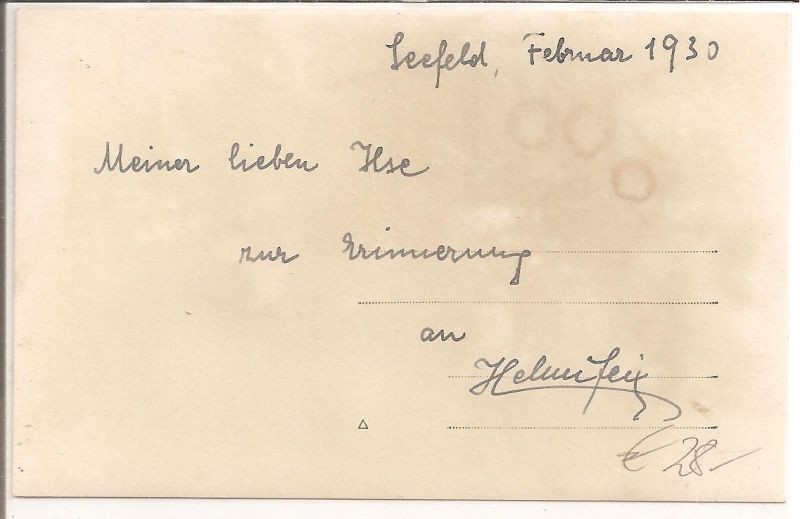 Seefeld, Februar 1930
Meiner lieben Ilse
zur Erinnerung
an
€ 28-